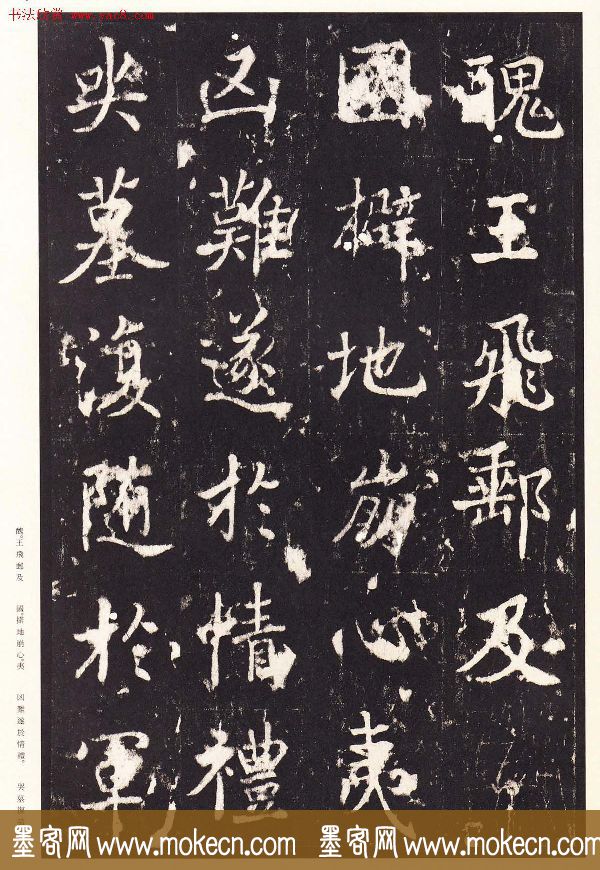 书法欣赏 www.yac8.com
醜王飛郵及
國擗地崩心夷
凶難遂於情禮
哭墓復随於軍
醜。王飛郵及 國。擗地崩心。夷 凶難遂於情禮。 哭墓復
墨客网 www.mokecn.com 墨客网 www.mokecn.com